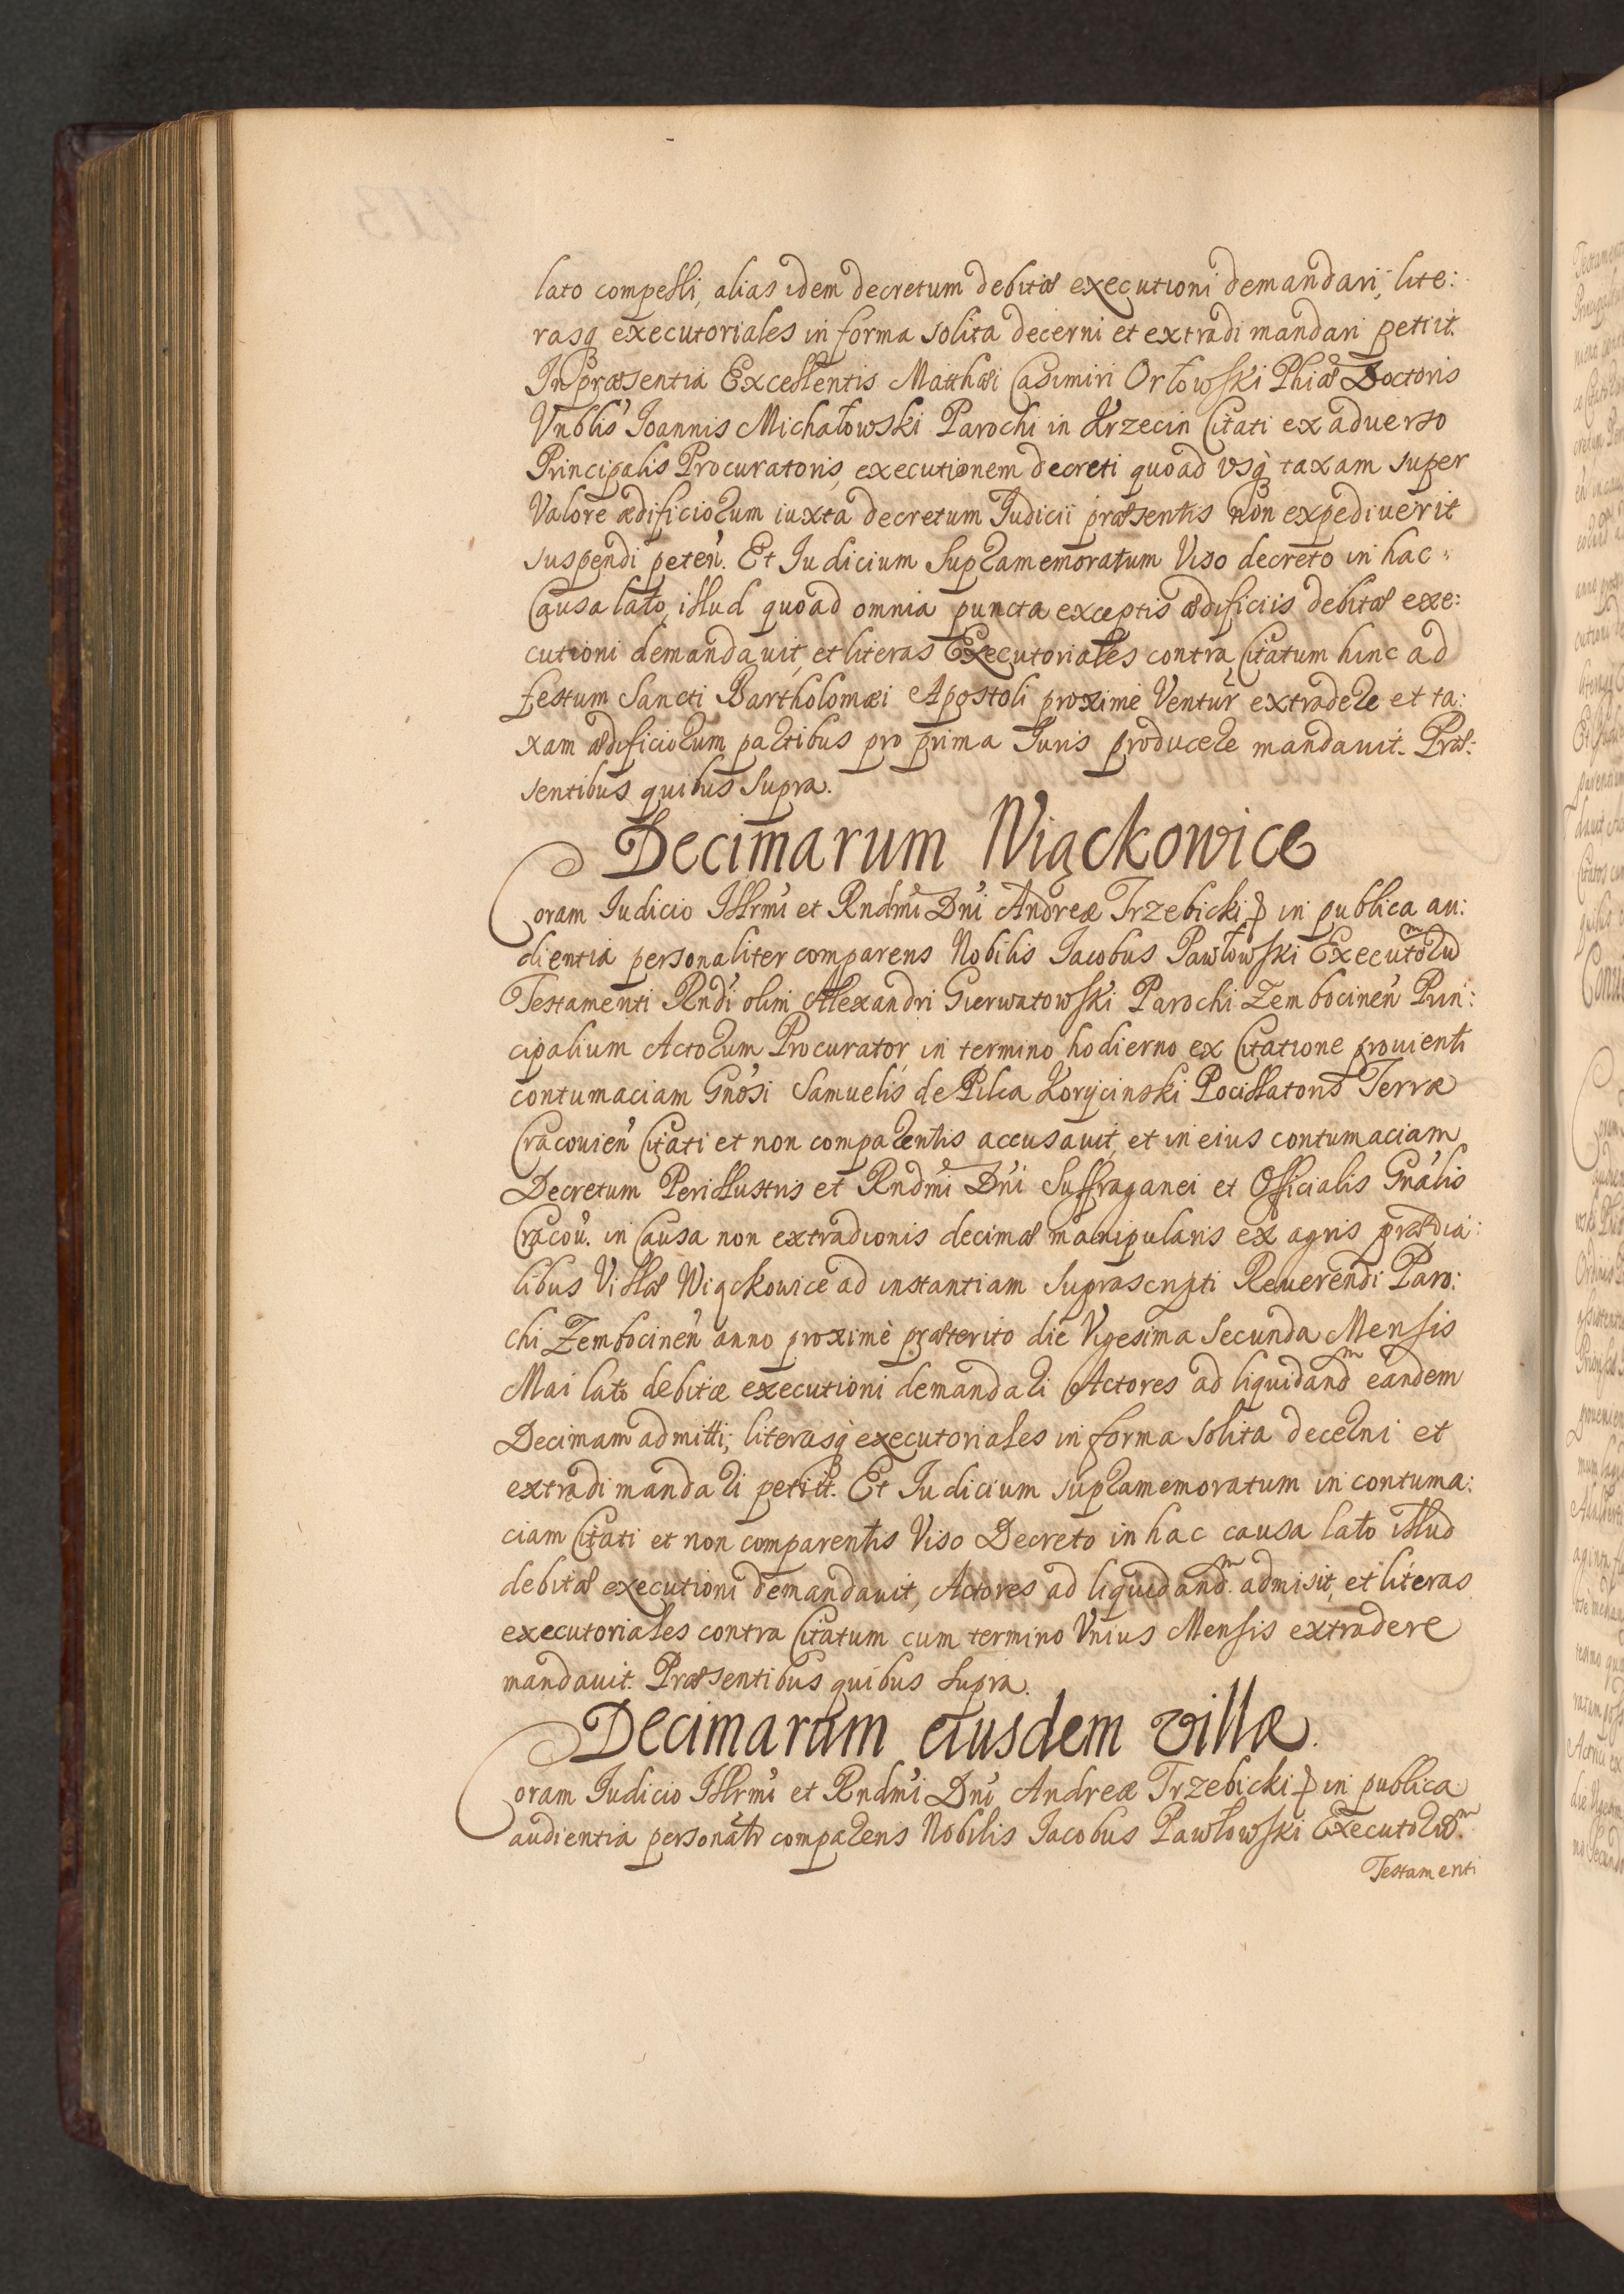 lato compelli, alias idem decretum debitæ executioni demandari, lite:
rasq executoriales in forma solita decerni et extradi mandari petiit.
In præsentia Excellentis Matthæi Casimiri Orłowski Phiæ Doctoris
Vnblis Ioannis Michałowski Parochi in Krzecin Citati ex aduerso
Principalis Procuratoris, executionem decreti quoad vsq taxam super
Valore ædificiorum iuxta decretum Iudicii præsentis non expediuerit
suspendi peteń. Et Iudicium Supramemoratum Viso decreto in hac
Causa lato, illud quoad omnia puncta exceptis ædificiis debitæ exe:
cutioni demandauit, et literas Executoriales contra Citatum hinc ad
festum Sancti Bartholomæi Apostoli proxime Ventur extradere et ta:
xam ædificiorum partibus pro prima Iuris producere mandauit. Præ:
sentibus quibus Supra.
Decimarum Wiąckowice
Coram Iudicio Illrmi et Rndmi Dni Andreæ Trzebicki in publica au:
dientia personaliter comparens Nobilis Iacobus Pawłowski Executorum
Testamenti Rndi olim Alexandri Gierwatowski Parochi Zembocineń Prin:
cipalium Actorum Procurator, in termino hodierno ex Citatione prouienti
contumaciam Gnosi Samuelis de Pilca Korycinski Pocillatoris Terræ
Cracouień Citati et non comparentis accusauit, et in eius contumaciam
Decretum Perillustris et Rndmi Dni Suffraganei et Officialis Gnalis
Cracou. in Causa non extradionis decimæ manipularis ex agris prædia:
libus Villæ Wiąckowice ad instantiam Suprascripti Reuerendi Paro:
chi Zembocineń anno proximè præterito die Vigesima Secunda Mensis
Mai lato debitæ executioni demandari Actores ad liquidandm eandem
Decimam admitti; literasq executoriales in forma solita decerni et
extradi mandari petiit. Et Iudicium supramemoratum in contuma:
ciam Citati et non comparentis Viso Decreto in hac causa lato illud
debitæ executioni demandauit, Actores ad liquidandm admisit, et literas
executoriales contra Citatum cum termino Vnius Mensis extradere
mandauit. Præsentibus quibus Supra.
Decimarum eiusdem villæ.
Coram Iudicio Illrmi et Rndmi Dni Andreæ Trzebicki in publica
audientia personatr comparens Nobilis Iacobus Pawłowski Executorum
Testamenti